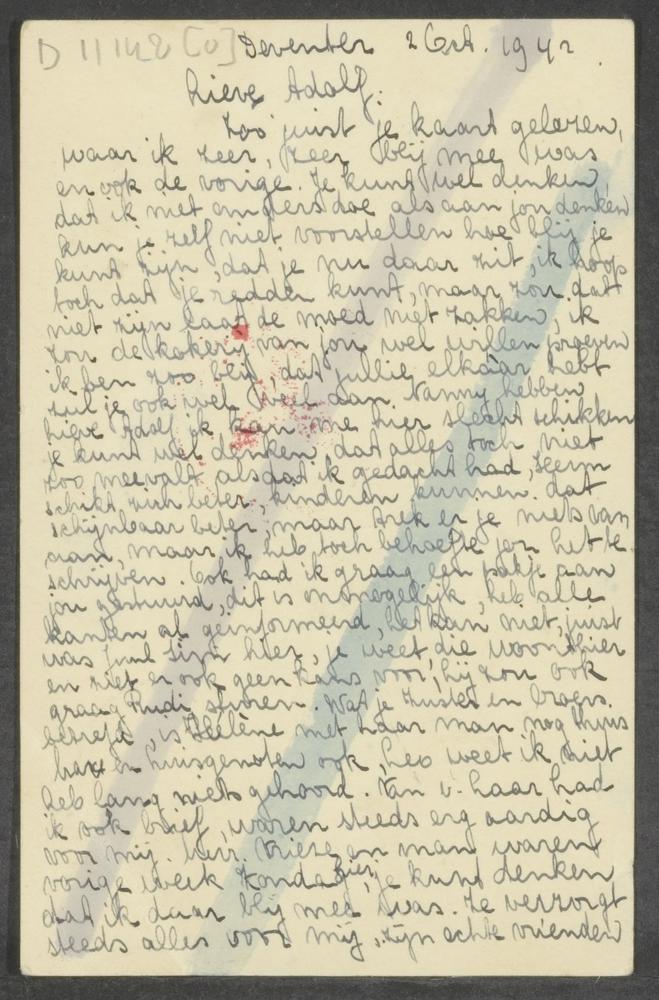 D 11142 [v] Deventer 2 Oct. 1942.
Lieve Adolf:
Zoo juist je kaart gelezen,
waar ik zeer, zeer blij mee was
en ook de vorige. Je kunt wel denken
dat ik niet anders doe als aan jou denken
kun je zelf niet voorstellen hoe blij je
kunt zijn, dat je nu daar zit, ik hoop
toch dat je redden kunt, maar zou dat
niet zijn laat de moed niet zakken, ik
zou de kokerij van jou wel willen proeven
ik ben zoo blij, dat jullie elkaar hebt
zul je ook wel veel aan Nanny hebben
Lieve Adolf ik kan me hier slecht schikken
je kunt wel denken dat alles toch niet
zoo meevalt alsdat ik gedacht had,
schikt zich beter, kinderen kunnen dat
schijnbaar beter, maar trek er je niets van
aan, maar ik heb toch behoefte jou het te
schrijven. Ook had ik graag een pakje aan
jou gestuurd, dit is onmogelijk, heb alle
kanten al geinformeerd, het kan niet, juist
was hier, je weet die woont hier
en ziet er ook geen kans voor, hij zou ook
graag Rudi sturen. Wat je zusters en broers
betreft, is Helène met haar man nog thuis
haar huisgenoten ook, weet ik niet
heb lang niets gehoord. Van v. haar had
ik ook brief, waren steeds erg aardig
voor mij. en man waren
vorige week Zondag hier, je kunt denken
dat ik daar blij mee was. Ze verzorgt
steeds alles voor mij, zijn echte vrienden